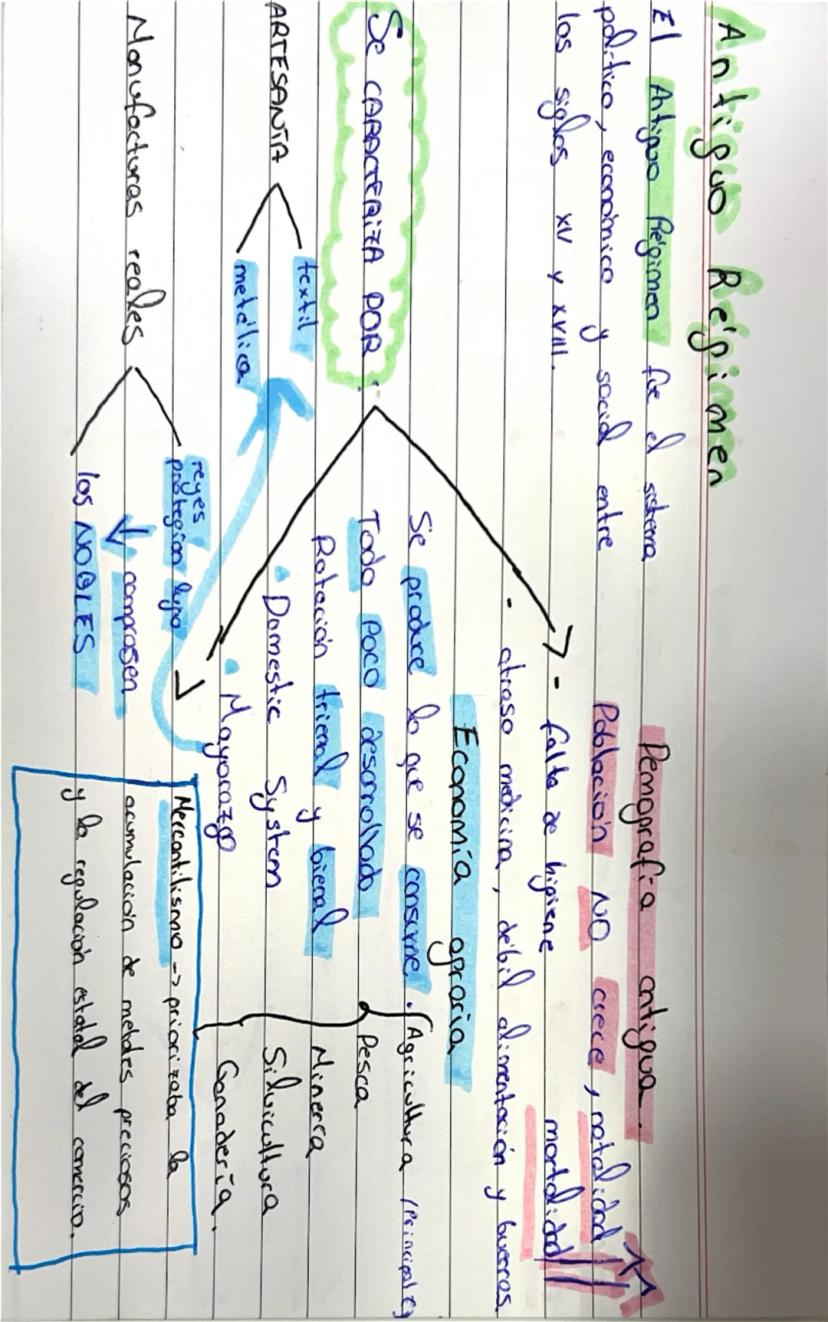 Antiguo Régimen
El Antiguo Régimen fue el sistema
político, económico y social entre
los siglos XV y XVIII.
Se CARACTERIZA POR:
Demografía antigua.
Población NO crece, natalidad
- falta de higiene mortalidad
- atraso medicina, débil alimentación y guerras.
Economía agraria
Se produce lo que se consume.
Todo poco desarrollado
Rotación trienal y bienal
• Domestic System
• Mayorazgo
Agricultura (principales)
Pesca
Minería
Silvicultura
Ganadería.
ARTESANÍA
textil
metálica
Manufacturas reales
reyes
protegían lujo
comprasen
los NOBLES
Mercantilismo -> priorizaba la
acumulación de metales preciosos
y la regulación estatal del comercio.